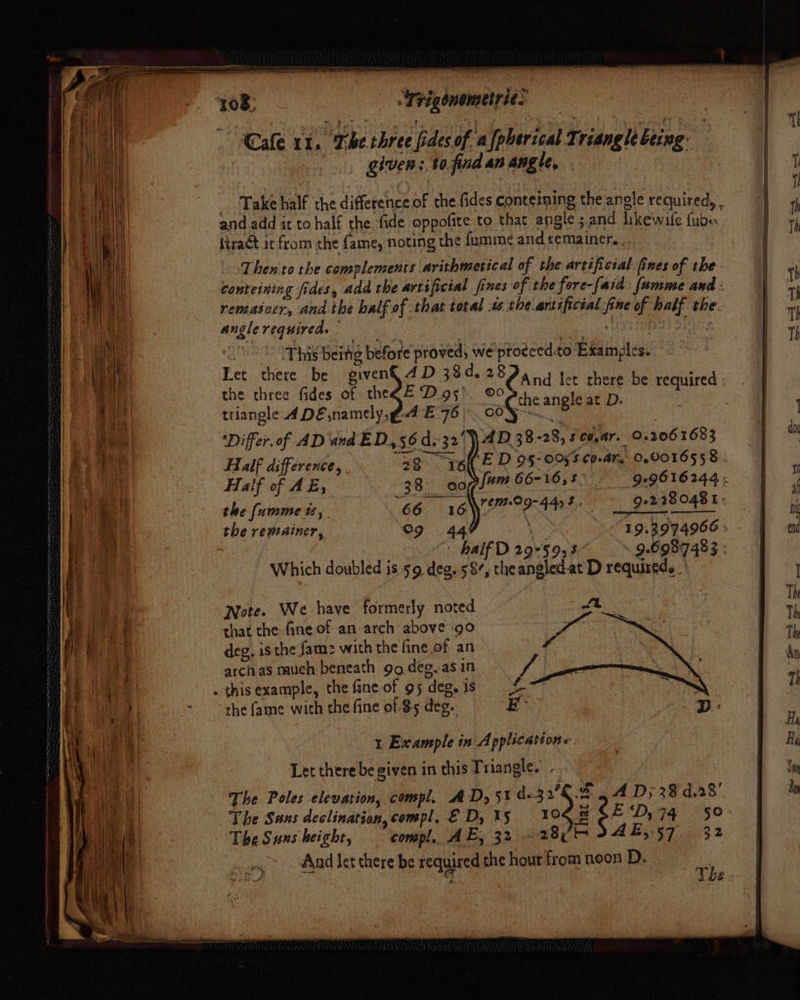 108 Trigonometrie.
Case 11. The three sides of a spherical Triangle being
given: to find an angle.
Take half the difference of the sides conteining the angle required,
and add it to half the side opposite to that angle; and likewise sub-
stract it from the same, noting the summe and remainer.
Then to the complements arithmetical of the artificial sines of the
conteining sides, add the artificial sines of the fore-said summe and
remainer, and the half of that total is the artificial sine of half the
angle required.
This being before proved, we proceed to Examples.
Let there be given AD 38 d. 28 And let there be required
the three sides of the ED 95 00 the angle at D.
triangle ADE, namely, AE 76 00
Differ. of AD and ED, 56 d. 32' AD 38-28, s co. ar. 0.2061683
Half difference, 28 16 ED 95-00, s co. ar. 0.0016558
Half of AE, 38 00 sum 66-16, s 9.9616244
the summe is, 66 16 rem. 09-44, s. 9.2280481
the remainer, 09 44 19.3974966
half D 29-59, s 9.6987483
Which doubled is 59 deg. 58', the angled at D required.
Note. We have formerly noted
that the sine of an arch above 90
deg. is the same with the sine of an
arch as much beneath 90 deg. as in
this example, the sine of 95 deg. is
the same with the sine of 85 deg.
A
E D.
1 Example in Application.
Let there be given in this Triangle.
The Poles elevation, compl. AD, 51 d. 32' That is AD, 38 d. 28'
The Suns declination, compl. ED, 15 10 ED, 74 50
The Suns height, compl. AE, 32 28 AE, 57 32
And let there be required the hour from noon D.
The